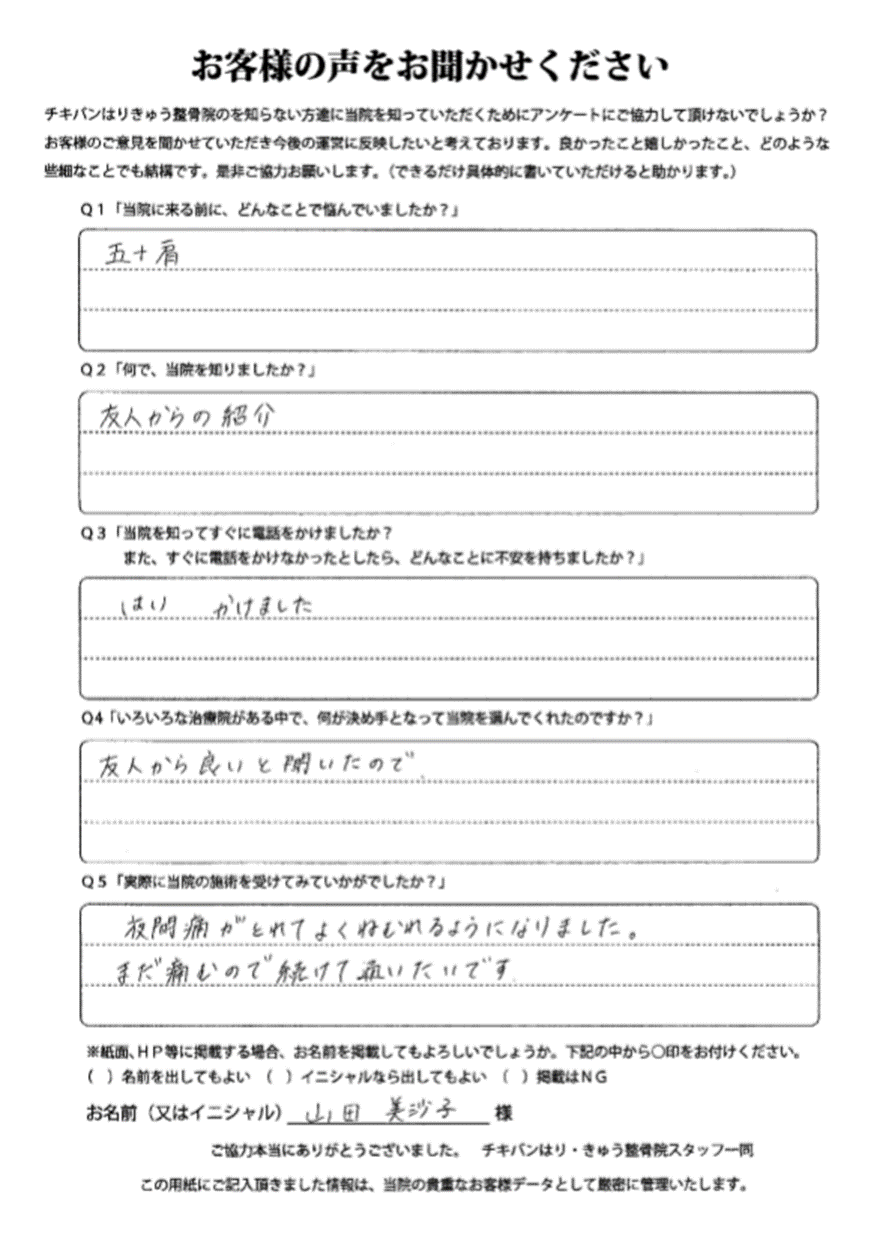 お客様の声をお聞かせください
チキバンはりきゅう整骨院のを知らない方達に当院を知っていただくためにアンケートにご協力して頂けないでしょうか？
お客様のご意見を聞かせていただき今後の運営に反映したいと考えております。良かったこと嬉しかったこと、どのような
些細なことでも結構です。是非ご協力お願いします。（できるだけ具体的に書いていただけると助かります。）
Ｑ１「当院に来る前に、どんなことで悩んでいましたか？」
五十肩
Ｑ２「何で、当院を知りましたか？」
友人からの紹介
Ｑ３「当院を知ってすぐに電話をかけましたか？
また、すぐに電話をかけなかったとしたら、どんなことに不安を持ちましたか？」
はい かけました
Q4「いろいろな治療院がある中で、何が決め手となって当院を選んでくれたのですか？」
友人から良いと聞いたので、
Ｑ５「実際に当院の施術を受けてみていかがでしたか？」
夜間痛がとれてよくねむれるようになりました。
まだ痛むので続けて通いたいです
※紙面、ＨＰ等に掲載する場合、お名前を掲載してもよろしいでしょうか。下記の中から〇印をお付けください。
（　）名前を出してもよい （　）イニシャルなら出してもよい （　）掲載はＮＧ
お名前（又はイニシャル） 山田 美沙子 様
ご協力本当にありがとうございました。 チキバンはり・きゅう整骨院スタッフ一同
この用紙にご記入頂きました情報は、当院の貴重なお客様データとして厳密に管理いたします。